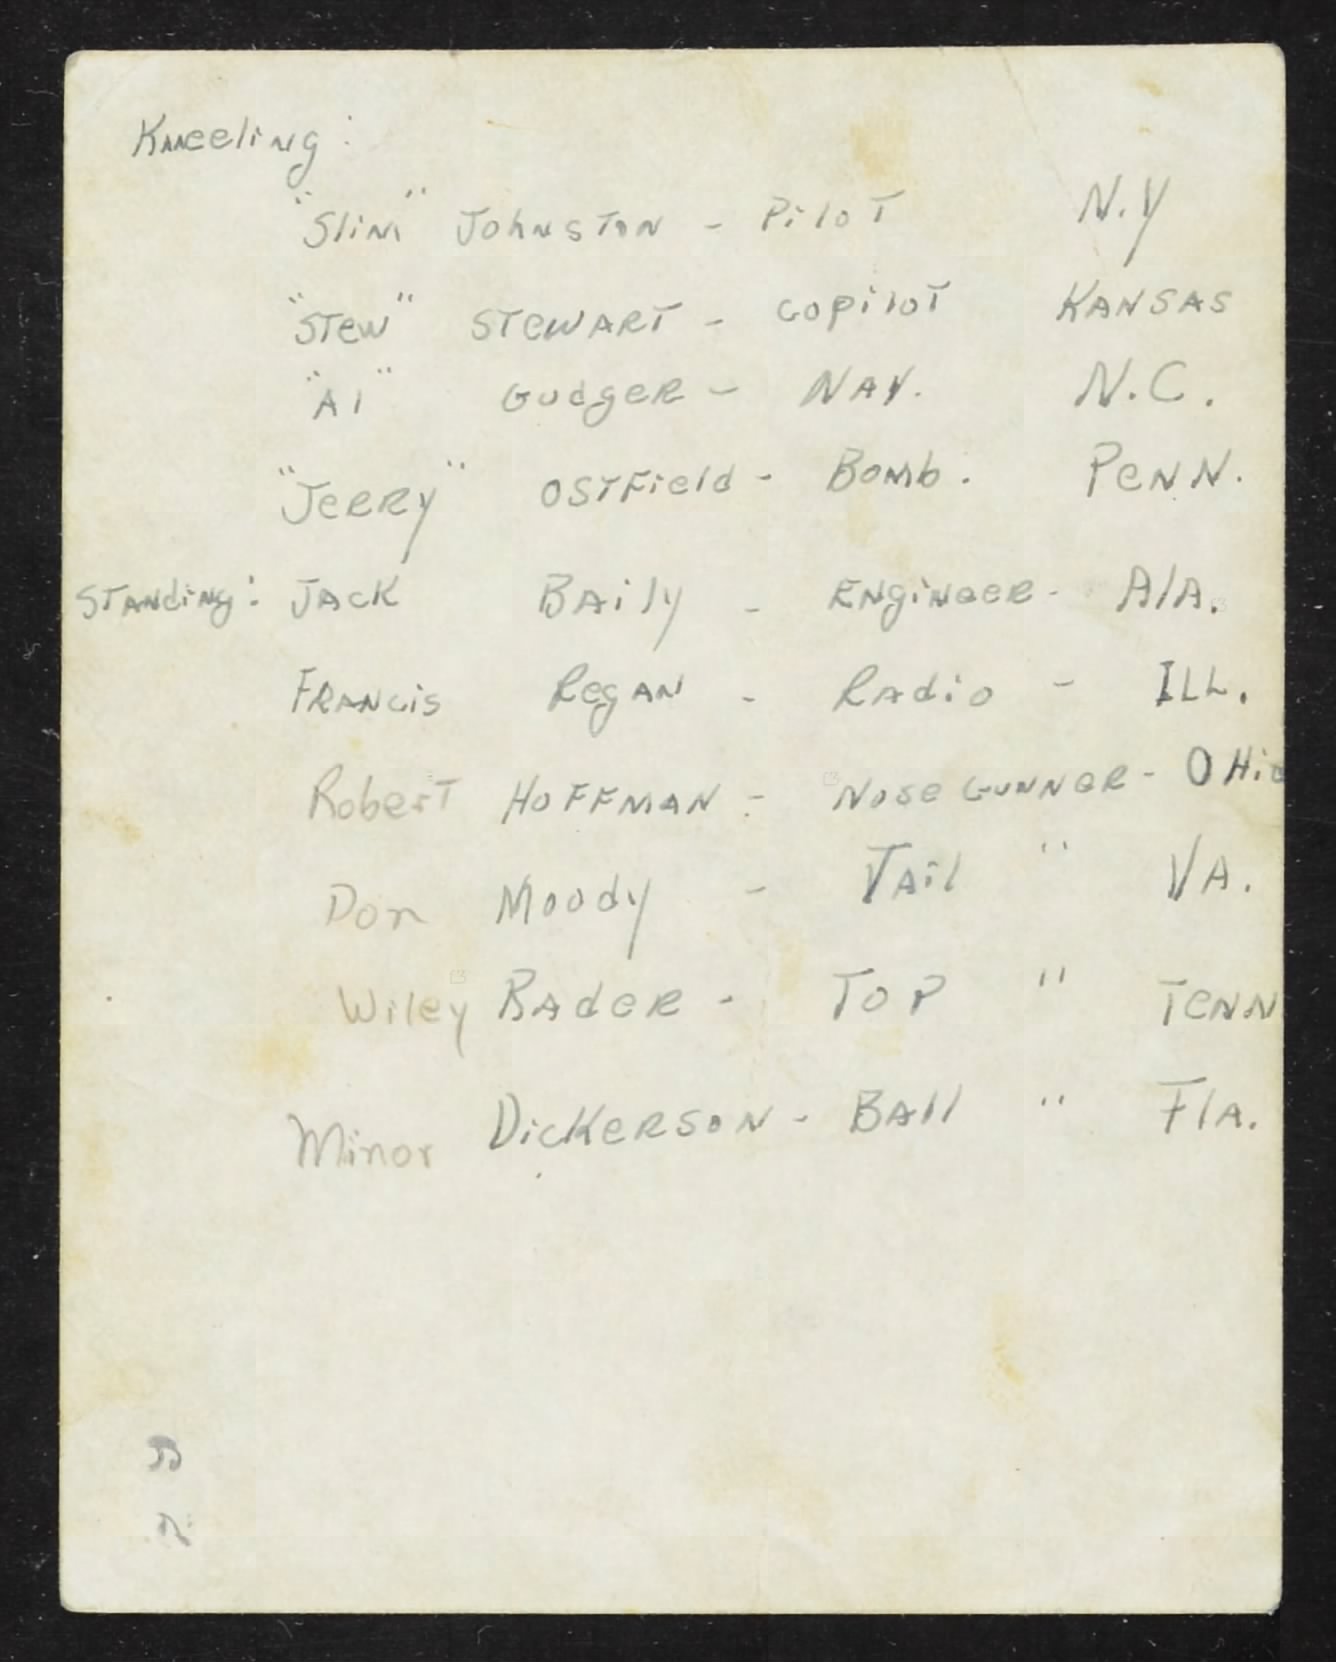 Kneeling:
"Slim" Johnston - Pilot N.Y
"Stew" Stewart - Copilot Kansas
"Al" Gudger - Nav. N.C.
"Jerry" Ostfield - Bomb. Penn.
Standing: Jack Baily - Engineer - Ala.
Francis Regan - Radio - Ill.
Robert Hoffman - Nose Gunner - Ohio
Don Moody - Tail " Va.
Wiley Bader - Top " Tenn
Minor Dickerson - Ball " Fla.